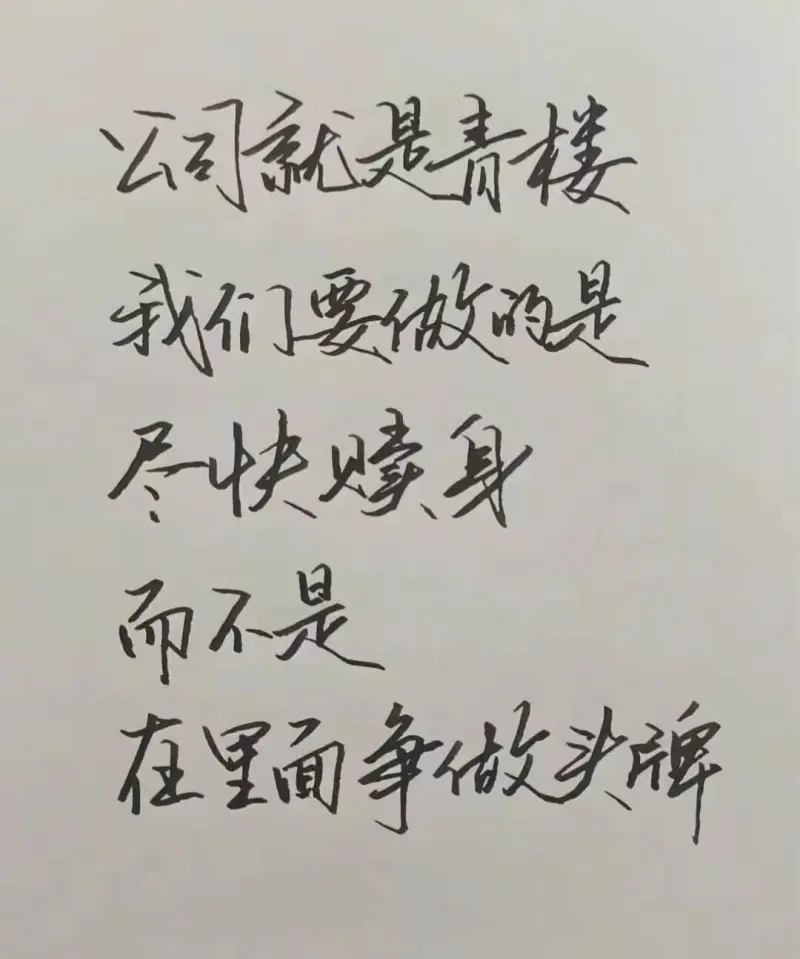 公司就是青楼
我们要做的是
尽快赎身
而不是
在里面争做头牌